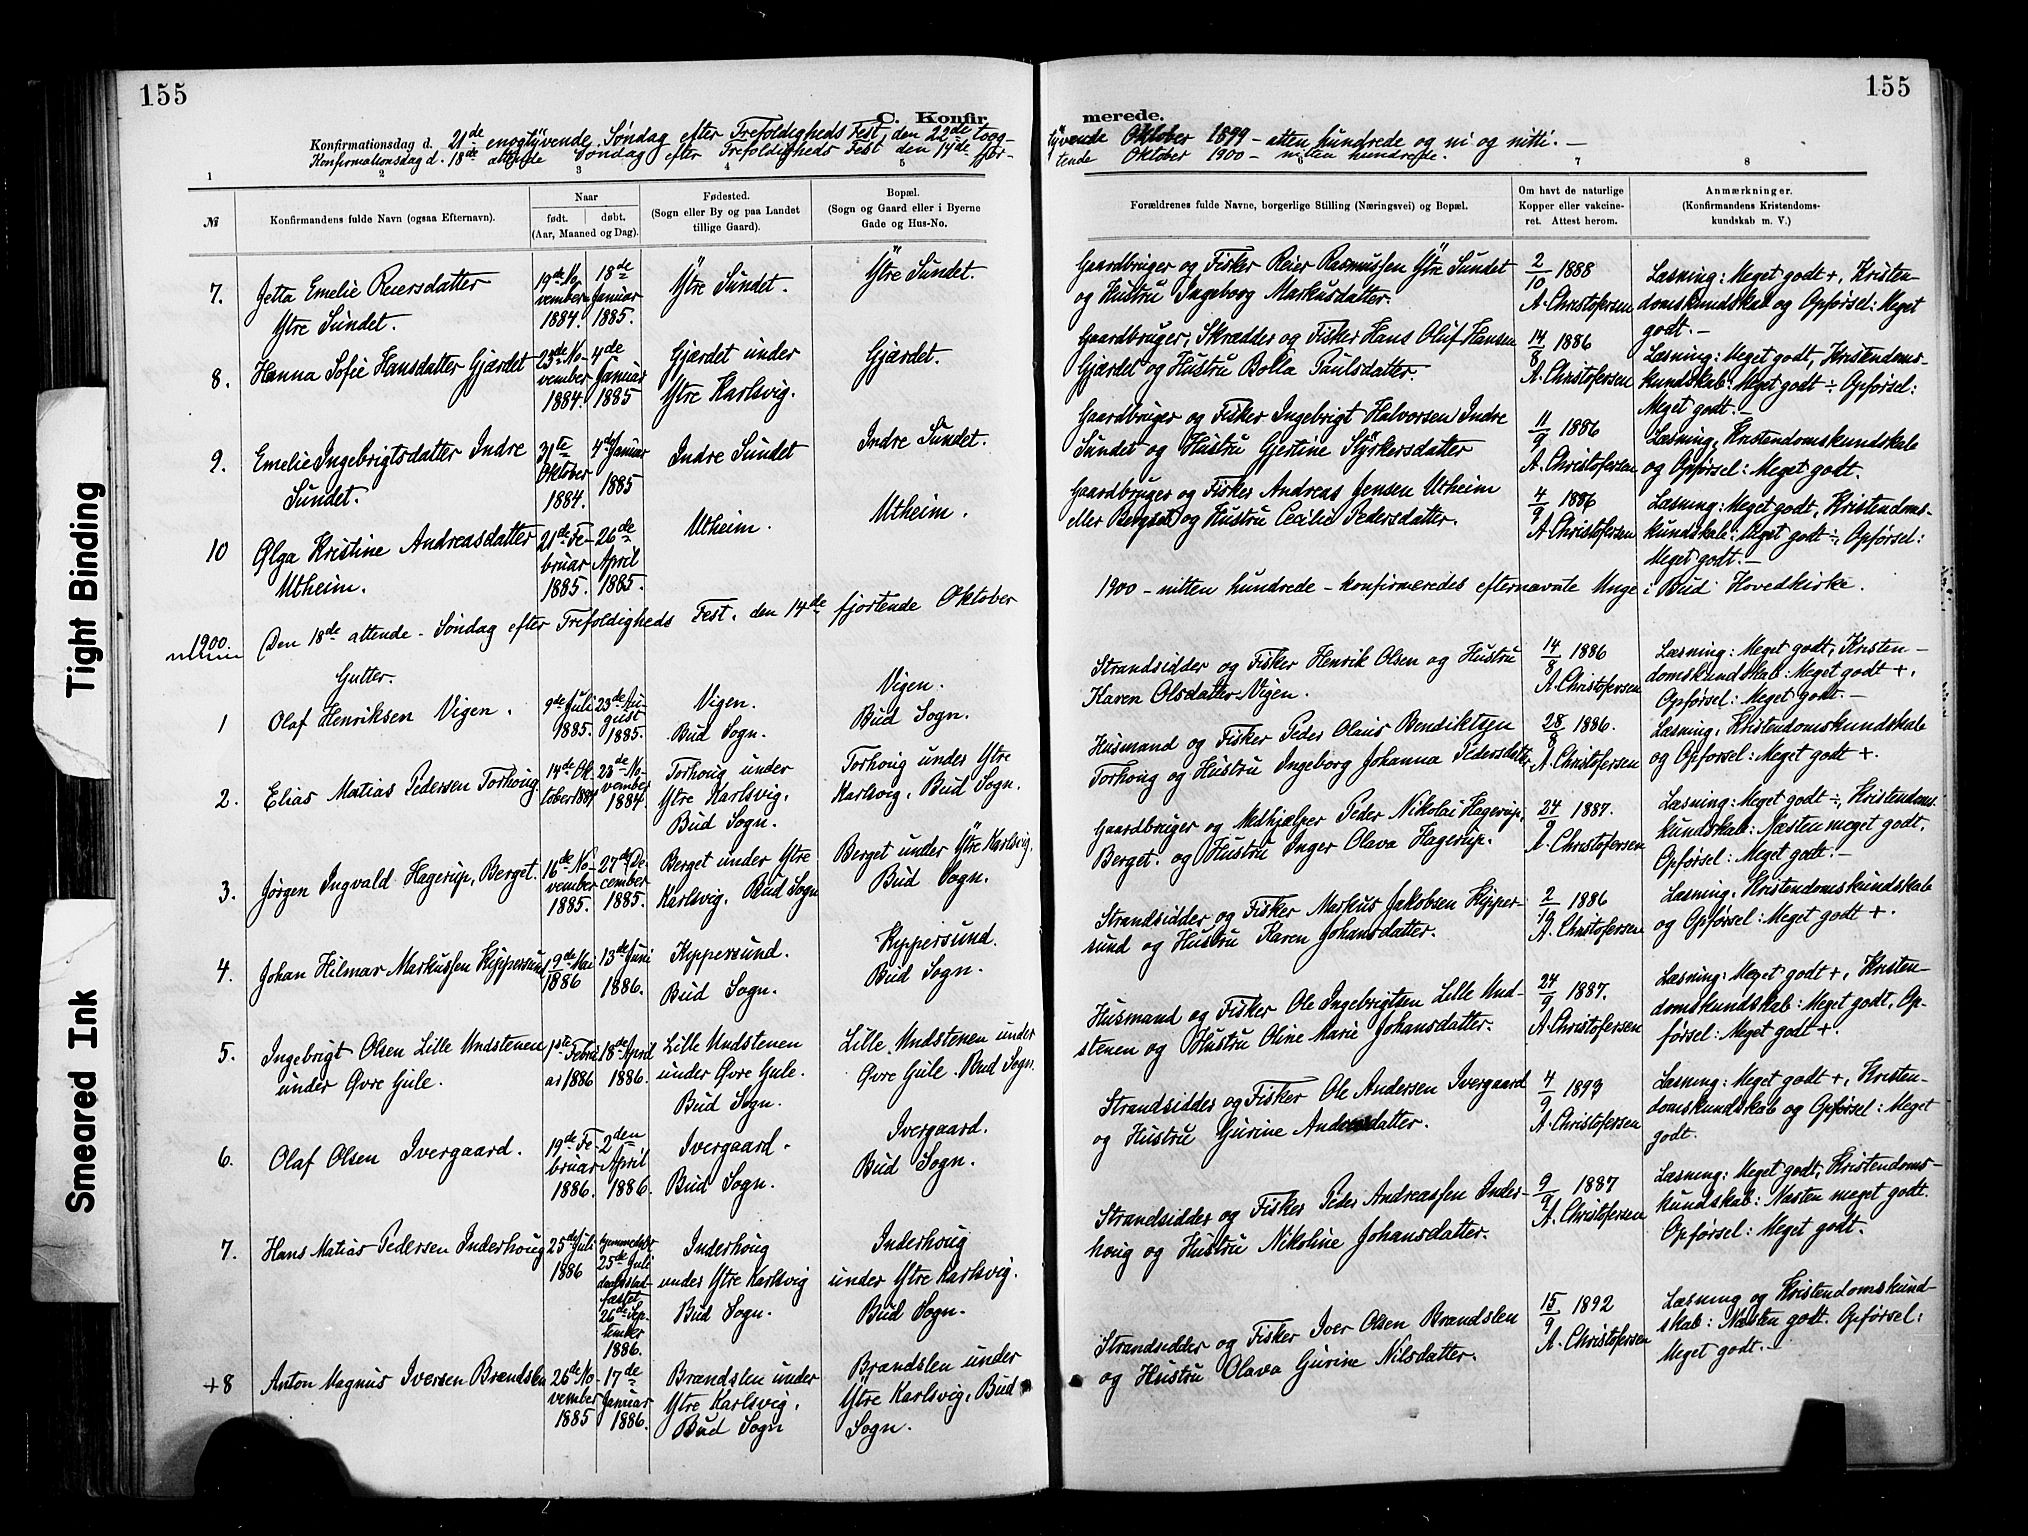 155
C. Konfir
Konfirmationsdag d. 21de enogtyvende Søndag efter Trefoldigheds Fest, den 22de toog-
Konfirmationsdag d. 18de attende Søndag efter Trefoldigheds Fest den 14de fjor-
1 2 3 4 5
№
Konfirmandens fulde Navn (ogsaa Efternavn).
Naar
født. døbt.
(Aar, Maaned og Dag).
Fødested.
(Sogn eller By og paa Landet
tillige Gaard).
Bopæl.
(Sogn og Gaard eller i Byerne
Gade og Hus-No.
7. Jetta Emelie Reiersdatter
Ytre Sundet.
19de No-
vember
1884.
18de
Januar
1885.
Ytre Sundet.
Ytre Sundet.
8. Hanna Sofie Hansdatter Gjærdet
23de No-
vember
1884.
4de
Januar
1885
Gjærdet under
Ytre Karlsvig.
Gjærdet.
9. Emelie Ingebrigtsdatter Indre
Sundet.
31te
Oktober
1884.
4de Januar
1885
Indre Sundet
Indre Sundet.
10 Olga Kristine Andreasdatter
Utheim.
21de Fe-
bruar
1885.
26de
April
1885.
Utheim.
Utheim.
1900. Den 18de attende. Søndag efter Trefoldigheds Fest. den 14de fjortende Oktober
Gutter.
1 Olaf Henriksen Vigen.
9de Juli
1885.
23de Au-
gust
1885.
Vigen.
Bud Sogn.
Vigen.
Bud Sogn.
2. Elias Matias Pedersen Torhoug.
14de Ok-
tober 1884
23de No-
vember
1884.
Torhoug under
Ytre Karlsvig.
Bud Sogn.
Torhoug under Ytre
Karlsvig. Bud Sogn.
3. Jørgen Ingvald Hagerup, Berget.
16de No-
vember
1885.
27de De-
cember
1885.
Berget under Ytre
Karlsvig. Bud Sogn
Berget under Ytre Karlsvig.
Bud Sogn.
4. Johan Hilmar Markussen Kippersund
9de Mai
1886
13de Juni
1886.
Kippersund.
Bud Sogn.
Kippersund.
Bud Sogn.
5. Ingebrigt Olsen Lille Undstenen
under Øvre Gule.
1ste Febru-
ar 1886
18de April
1886.
Lille Undstenen
under Øvre Gule.
Bud Sogn.
Lille Undstenen under
Øvre Gule. Bud Sogn.
6. Olaf Olsen Ivergaard.
19de Fe-
bruar
1886.
2den
April
1886.
Ivergaard.
Bud Sogn.
Ivergaard.
Bud Sogn.
7. Hans Matias Pedersen Inderhoug
25de Juli
1886
hjemmedøbt
25de Juli
daabsstad-
fæstet
26de Sep-
tember
1886.
Inderhoug
under Ytre Karlsvig
Bud Sogn.
Inderhoug
under Ytre Karlsvig.
Bud Sogn.
+8 Anton Magnus Iversen Brændslen
26de No-
vember
1885
17de
Januar
1886.
Brændslen under
Ytre Karlsvig.
Bud Sogn
Brændslen under
Ytre Karlsvig. Bud
Sogn.
155
merede.
tyvende Oktober 1899 - atten hundrede og ni og nitti. -
tende Oktober 1900 - nitten hundrede.
6 7 8
Forældrenes fulde Navne, borgerlige Stilling (Næringsvei) og Bopæl.
Om havt de naturlige
Kopper eller vakcine-
ret. Attest herom.
Anmærkninger.
(Konfirmandens Kristendoms-
kundskab m. V.)
Gaardbruger og Fisker Reier Rasmussen Ytre Sundet
og Hustru Ingeborg Markusdatter.
2/10 1888
A. Christofersen
Læsning: Meget godt +, Kristen-
domskundskab og Opførsel: Meget
godt. -
Gaardbruger, Skrædder og Fisker Hans Oluf Hansen
Gjærdet og Hustru Bolla Paulsdatter.
14/8 1886
A. Christofersen
Læsning: Meget godt, Kristendoms-
kundskab: Meget godt ÷ Opførsel:
Meget godt. -
Gaardbruger og Fisker Ingebrigt Halvorsen Indre
Sundet og Hustru Gjertine Styrkersdatter
11/9 1886
A. Christofersen
Læsning, Kristendomskundskab
og Opførsel: Meget godt.
Gaardbruger og Fisker Andreas Jensen Utheim
eller Bergset og Hustru Cecilie Pedersdatter.
4/9 1886
A. Christofersen
Læsning: Meget godt, Kristendoms-
kundskab: Meget godt ÷, Opførsel:
Meget godt. -
1900 - nitten hundrede - konfirmeredes efternævnte Unge i Bud Hovedkirke.
Strandsidder og Fisker Henrik Olsen og Hustru
Karen Olsdatter Vigen.
14/8 1886
A. Christofersen
Læsning: Meget godt, Kristen-
domskundskab: Meget godt +.
Opførsel: Meget godt. -
Husmand og Fisker Peder Olaus Bendiktsen
Torhoug og Hustru Ingeborg Johanna Pedersdatter
28/8 1886.
A. Christofersen
Læsning, Kristendomskundskab
og Opførsel: Meget godt +.
Gaardbruger og Medhjælper Peder Nikolai Hagerup,
Berget. og Hustru Inger Olava Hagerup.
24/9 1887.
A. Christofersen
Læsning: Meget godt ÷, Kristendoms-
kundskab: Næsten meget godt.
Opførsel: Meget godt. -
Strandsidder og Fisker Markus Jakobsen Kipper-
sund og Hustru Karen Johansdatter.
2/10 1886
A. Christofersen
Læsning, Kristendomskundskab
og Opførsel: Meget godt +.
Husmand og Fisker Ole Ingebrigtsen Lille Und-
stenen og Hustru Oline Marie Johansdatter.
24/9 1887.
A. Christofersen
Læsning: Meget godt +, Kristen-
domskundskab: Meget godt, Op-
førsel: Meget godt +.
Strandsidder og Fisker Ole Andersen Ivergaard
og Hustru Gurine Andersdatter.
4/9 1893
A. Christofersen
Læsning: Meget godt +, Kristen-
domskundskab og Opførsel: Meget
godt.
Strandsidder og Fisker Peder Andreassen Inder-
houg og Hustru Nikoline Johansdatter.
9/9 1887
A. Christofersen
Læsning: Meget godt, Kristendoms-
kundskab: Næsten meget godt.
Opførsel: Meget godt.
Strandsidder og Fisker Iver Olsen Brandslen
og Hustru Olava Gurine Nilsdatter.
15/9 1892
A. Christofersen
Læsning og Kristendomskund-
skab: Næsten godt. Opførsel:
Meget godt. -
Tight Binding
Smeared Ink